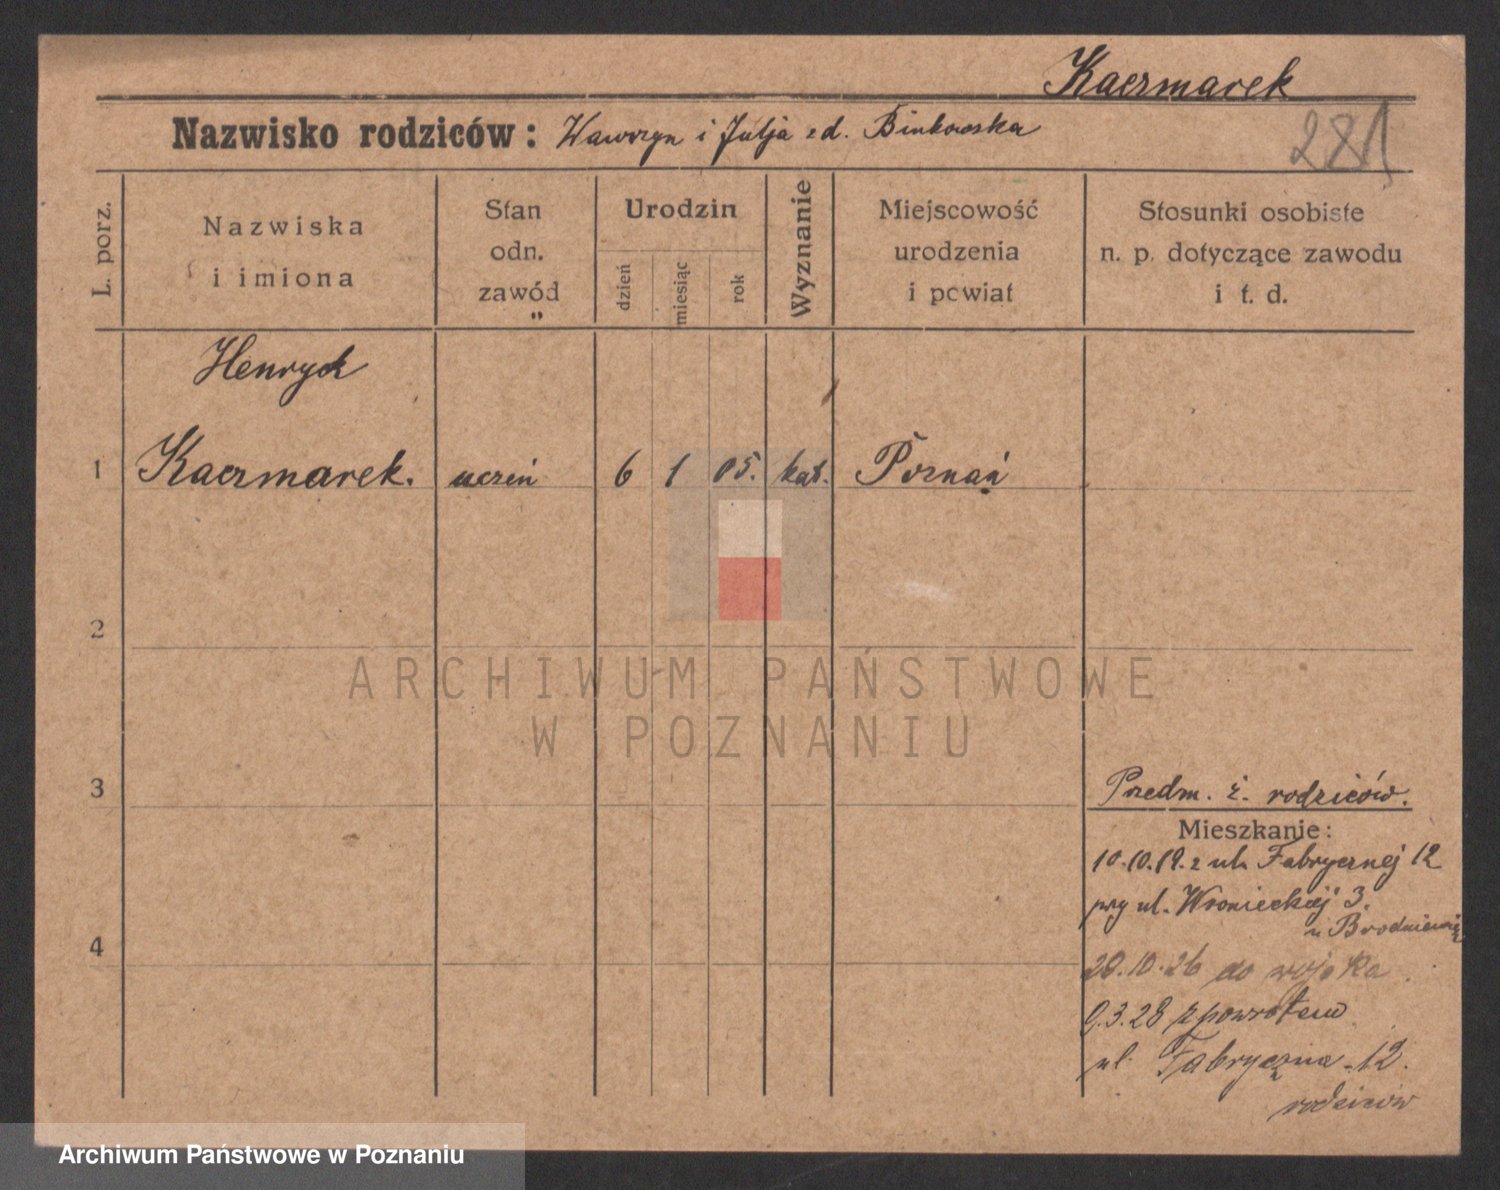 Kaczmarek
Nazwisko rodziców: Wawrzyn i Julja zd. Binkowska
281
L. porz.
Nazwiska
i imiona
Stan
odn.
zawód
"
Urodzin
dzień
miesiąc
rok
Wyznanie
Miejscowość
urodzenia
i powiat
Stosunki osobiste
n. p. dotyczące zawodu
i t. d.
Henryck
1 Kaczmarek. uczeń 6 1 05. kat. Poznań
2
ARCHIWUM PAŃSTWOWE
W POZNANIU
3
Przedm. ż. rodziców.
Mieszkanie:
10.10.19. z ul. Fabrycznej 12
przy ul. Wronieckiej 3.
4
28.10.26 do wojska
9.3.28 z powrotem
ul. Fabryczna 12.
rodziców
Archiwum Państwowe w Poznaniu